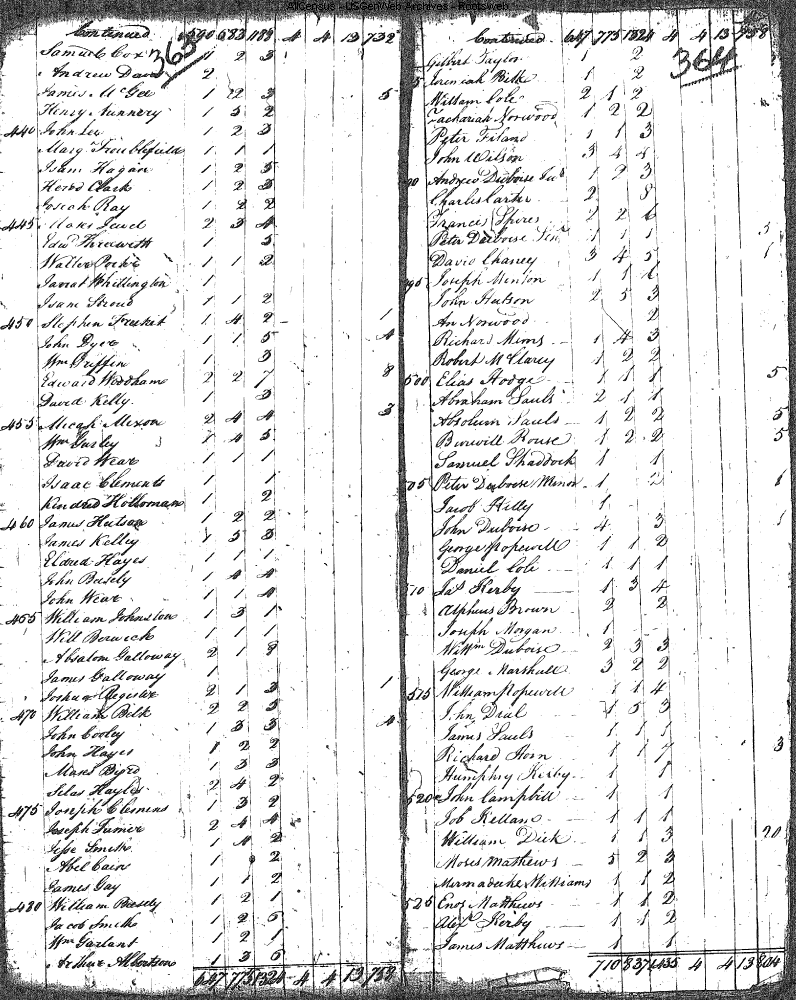 AllCensus - USGenWeb Archives - Rootsweb
Continued 590 683 1189 4 4 13 732
363
Samuel Cox 1 2 3
Andrew 2
James McGee 1 2 3 5
Henry Nunnery 1 3 2
440 John Lee 1 2 3
Marg Troublefield 1 1 1
Isam Hagan 1 2 5
Clark 1 2 3
Josiah Ray 1 2 2
445 2 3 4
1 5
Walter 1 1 2
Jarrat Whittington 1
Isam Stroud 1 1 2
450 Stephen 1 4 2 1
John Dyer 1 1 5 4
Wm Griffin 3
Edward Woodham 2 2 7 8
David Kelly 3
455 Micajh Mixon 2 4 4 3
Wm 1 4 5
David Wear 1 1 1
Isaac Clements 1 1
Kindred Holloman 1 2
460 James Hutson 1 2 2
James Kelley 1 5 3
Eldred Hayes 1 1 1
John Beasely 1 4 4
John Wear 1 1 4
465 William Johnston 1 3 1
Will Berwick 1 1 1
Absalom Galloway 2 1 8
James Galloway 1
Joshua Register 2 1 3 1
470 William Belk 2 2 5
John Cooley 1 3 3 4
John Hayes 1 2 2
Moses Byrd 1 3 3
Silas Hayles 2 4 2
475 Joseph Clemens 1 3 2
Joseph Turner 2 4 4
Jesse Smith 1 4 2
Abel Cain 1 2
James Gay 1 1 2
480 William Beasely 1 2 1
Jacob Smith 1 2 6
Wm Garlant 1 2 1
Arthur Albertson 1 3 6
647 775 1324 4 4 13 758
Continued 647 775 1324 4 4 13 758
364
Gilbert Taylor 1 2
Jeremiah Belk 1 2
William Cole 2 1 2
Zachariah Norwood 1 2 2
Peter 1 1 3
John Wilson 3 4 4
90 Andrew Duboise Jur 1 2 3
Charles Carter 2 8
Frances Spires 2 2 6
Peter Duboise Senr 1 1 1 3
David Chaney 3 4 5 1
495 Joseph Minton 1 1 6
John Hutson 2 5 3
An Norwood 2
Richard Mims 1 4 3
Robert McClarey 1 2 2
500 Elias Hodge 1 1 1 5
Abraham Sauls 2 1 1
Absolum Sauls 1 2 2 5
Burwill Rouse 1 2 2 5
Samuel Shaddock 1 1
505 Peter Duboise Minor 1 2 1
Jacob Kelly 1
John Duboise 4 3 1
George Popewell 1 1 2
Daniel Cole 1 1 1
510 Jas Kerby 1 3 4
Alpheus Brown 2 2
Joseph Morgan 1
Willm Duboise 2 3 3
George Marshall 3 2 2
515 William Popewell 1 1 4
John Dial 1 5 3
James Sauls 1 1 1
Richard Horn 1 1 7 3
Humphry Kirby 1 1
520 John Campbill 1 1 1
Job Kellan 1 1 1
William Dick 1 1 3 20
Moses Mathews 5 2 3
Marmaduke Williams 1 1 2
525 Enos Matthews 1 1 2
Alexr Kirby 1 1 2
James Matthews 1 1
710 837 1435 4 4 13 804